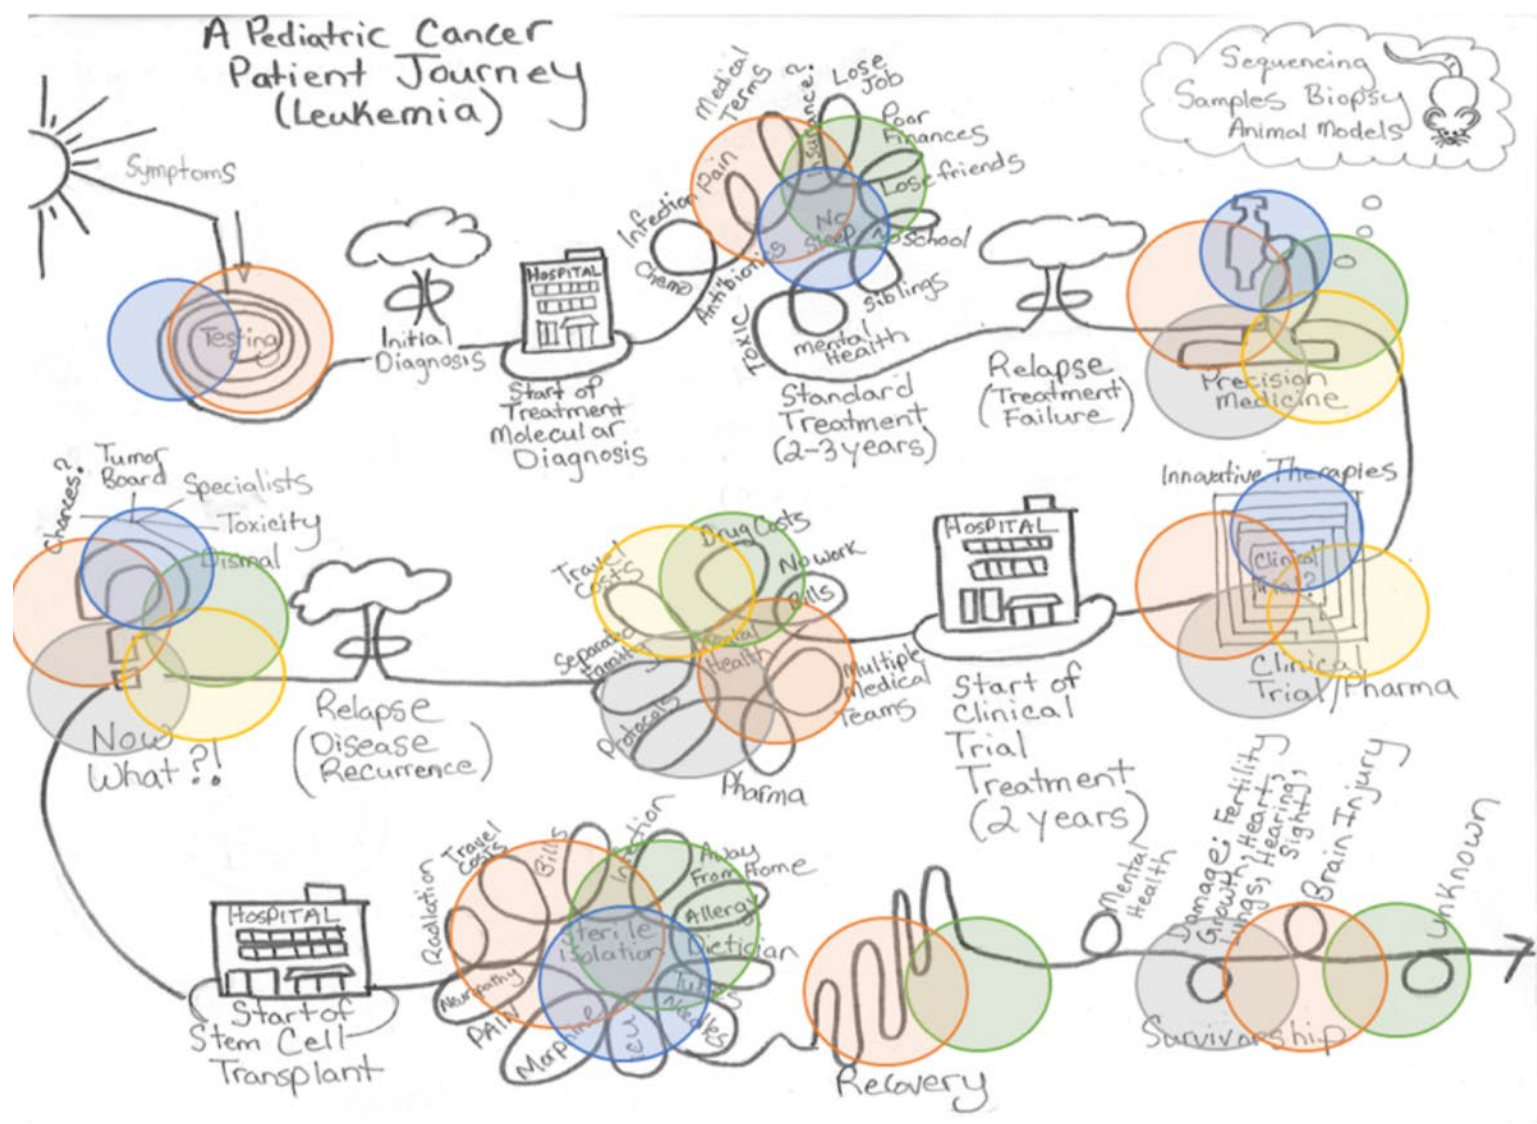 A Pediatric Cancer
Patient Journey
(Leukemia)
Sequencing
Samples Biopsy
Animal Models
Symptoms
Testing
Initial
Diagnosis
HOSPITAL
Start of
Treatment
Molecular
Diagnosis
Chemo
Infection
Antibiotics
Pain
Medical
Terms
Insurance?
Lose
Job
Poor
Finances
Lose friends
No School
No
Sleep
Siblings
mental
Health
Toxic
Standard
Treatment
(2-3 years)
Relapse
(Treatment
Failure)
Precision
Medicine
Innovative Therapies
Clinical
Trial?
Clinical
Trial/Pharma
HOSPITAL
Start of
Clinical
Trial
Treatment
(2 years)
Travel
Costs
Drug Costs
No work
Bills
Mental
Health
Multiple
Medical
Teams
Pharma
Protocols
Separated
Family
Relapse
(Disease
Recurrence)
Chances?
Tumor
Board
Specialists
Toxicity
Dismal
Now
What?!
HOSPITAL
Start of
Stem Cell
Transplant
Radiation
Travel
Costs
Bills
Away
From Home
Allergy
Dietician
Needles
Sterile
isolation
Morphine
PAIN
Neuropathy
Recovery
Mental
Health
Damage: Fertility
Growth, Heart,
Lungs, Hearing,
Sight,
Brain Injury
Unknown
Survivorship